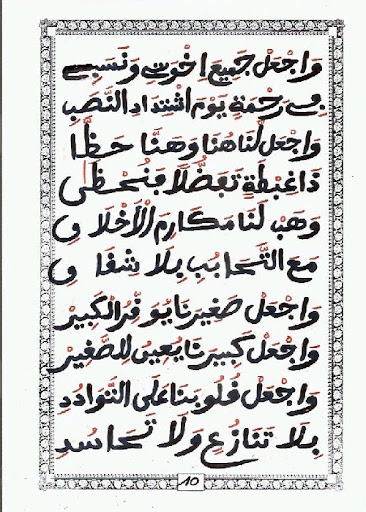 وَاجْعَلْ جَمِيعَ إِخْوَتِي وَنَسَبِي
فِي رَحْمَةٍ يَوْمَ اشْتِدَادِ النَّصَبِ
وَاجْعَلْ لَنَا هُنَا وَهَنَّا حَظَّا
ذَا غِبْطَةٍ تَفَضُّلًا فَنُحْظَى
وَهَبْ لَنَا مَكَارِمَ الْأَخْلَاقِ
مَعَ التَّحَابُبِ بِلَا شِقَاقِ
وَاجْعَلْ صَغِيرَنَا يُوَقِّرُ الْكَبِيرْ
وَاجْعَلْ كَبِيرَنَا يُعِينُ للصَّغِيرْ
وَاجْعَلْ قُلُوبَنَا عَلَى التَّوَادُدِ
بِلَا تَنَازُعٍ وَلَا تَحَاسُدِ
10